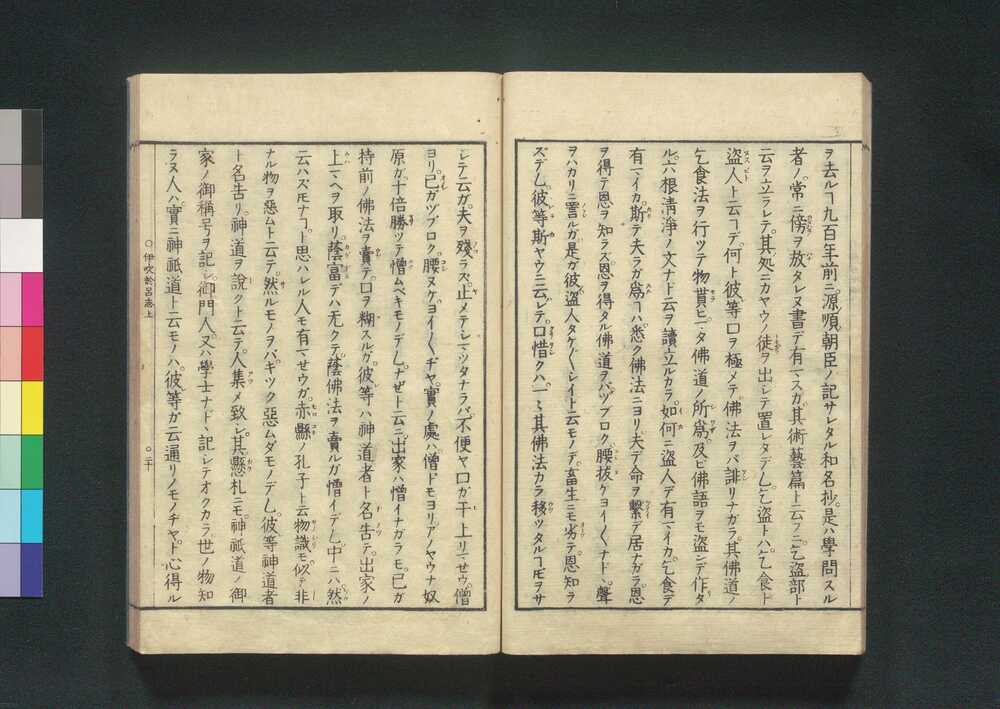 ヲ去ルヿ九百年前ニ源順朝臣ノ記サレタル和名抄是ハ學問スル
者ノ常ニ傍ヲ放タレヌ書デ有マスガ其術藝篇ト云フニ乞盗部ト
云ヲ立ラレテ其処ニカヤウノ徒ヲ出シテ置レタデム乞盗トハ乞食ト
盗人ト云コデ何ト彼等口ヲ極メテ佛法ヲバ誹リナガラ其佛道ノ
乞食法ヲ行ツテ物貰ヒマタ佛道ノ所爲及ビ佛語ヲモ盗ンデ作タ
ル六根清淨ノ文ナド云ヲ讀立ルカラ如何ニ盗人デ有マイカ乞食デ
有マイカ斯テ夫ラガ爲ヿハ悉ク佛法ニヨリ夫デ命ヲ繋デ居ナガラ恩
ヲ得テ恩ヲ知ラズ恩ヲ得タル佛道ヲバヅブロク腰拔ケヨイ〳〵ナド聲
ヲハカリニ詈ルガ是ガ彼盗人タケ〳〵シイト云モノデ畜生ニモ劣テ恩知ラ
ズデム彼等斯ヤウニ云シテ口惜クハマヽ其佛法カラ移ツタルヿ𪜈ヲサ
シテ云ガ夫ヲ殘ラズ止メテシマツタナラバ不便ヤ口ガ干上リマせウ僧
ヨリ己ガヅブロク腰ヌケヨイ〳〵ヂヤ實ノ處ハ僧ドモヨリアノヤウナ奴
原ガ十倍勝ツテ憎ムベキモノデムナゼト云ニ出家ハ憎イナガラモ已ガ
持前ノ佛法ヲ賣テ口ヲ糊スルガ彼等ハ神道者ト名告テ出家ノ
上マヘヲ取リ蔭富デハ无クテ蔭佛法ヲ賣ルガ憎イデム中ニハ然
云ハズ𪜈ナコト思ハレル人モ有マせウガ赤縣ノ孔子ト云物識モ似テ非
ナル物ヲ惡ムト云テ然ルモノヲバキツク惡ムダモノデム彼等神道者
ト名告リ神道ヲ說クト云テ人集メ致シ其懸札ニモ神祇道ノ御
家ノ御稱号ヲ記シ御門人又ハ學士ナドヽ記シテオクカラ世ノ物知
ラヌ人ハ實ニ神祇道ト云モノハ彼等ガ云通リノモノヂヤト心得ル
伊吹於呂志上
二十